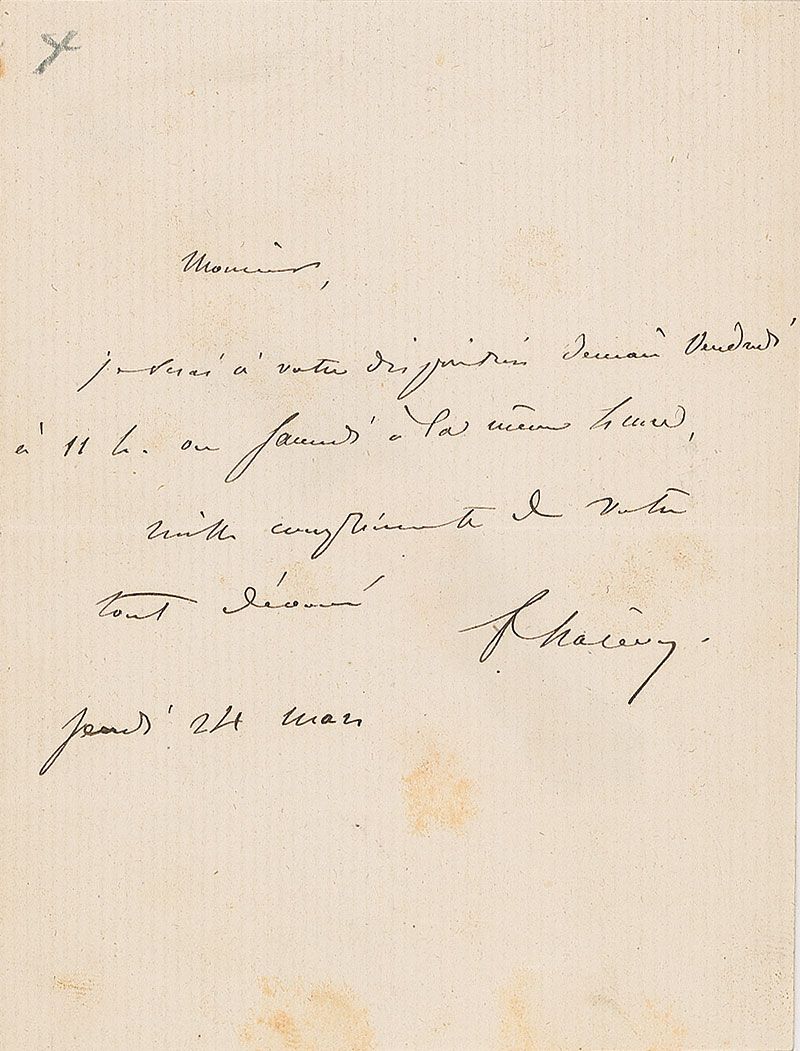 Monsieur,
je serai à votre disposition demain Vendredi
à 11 h. ou Samedi à la même heure,
mille compliments de votre
tout dévoué
Jeudi 24 mars